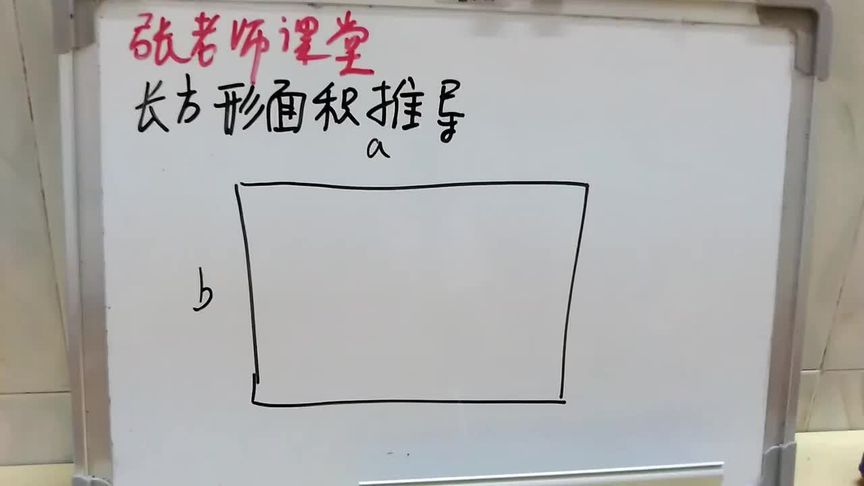 张老师课堂
长方形面积推导
a
b